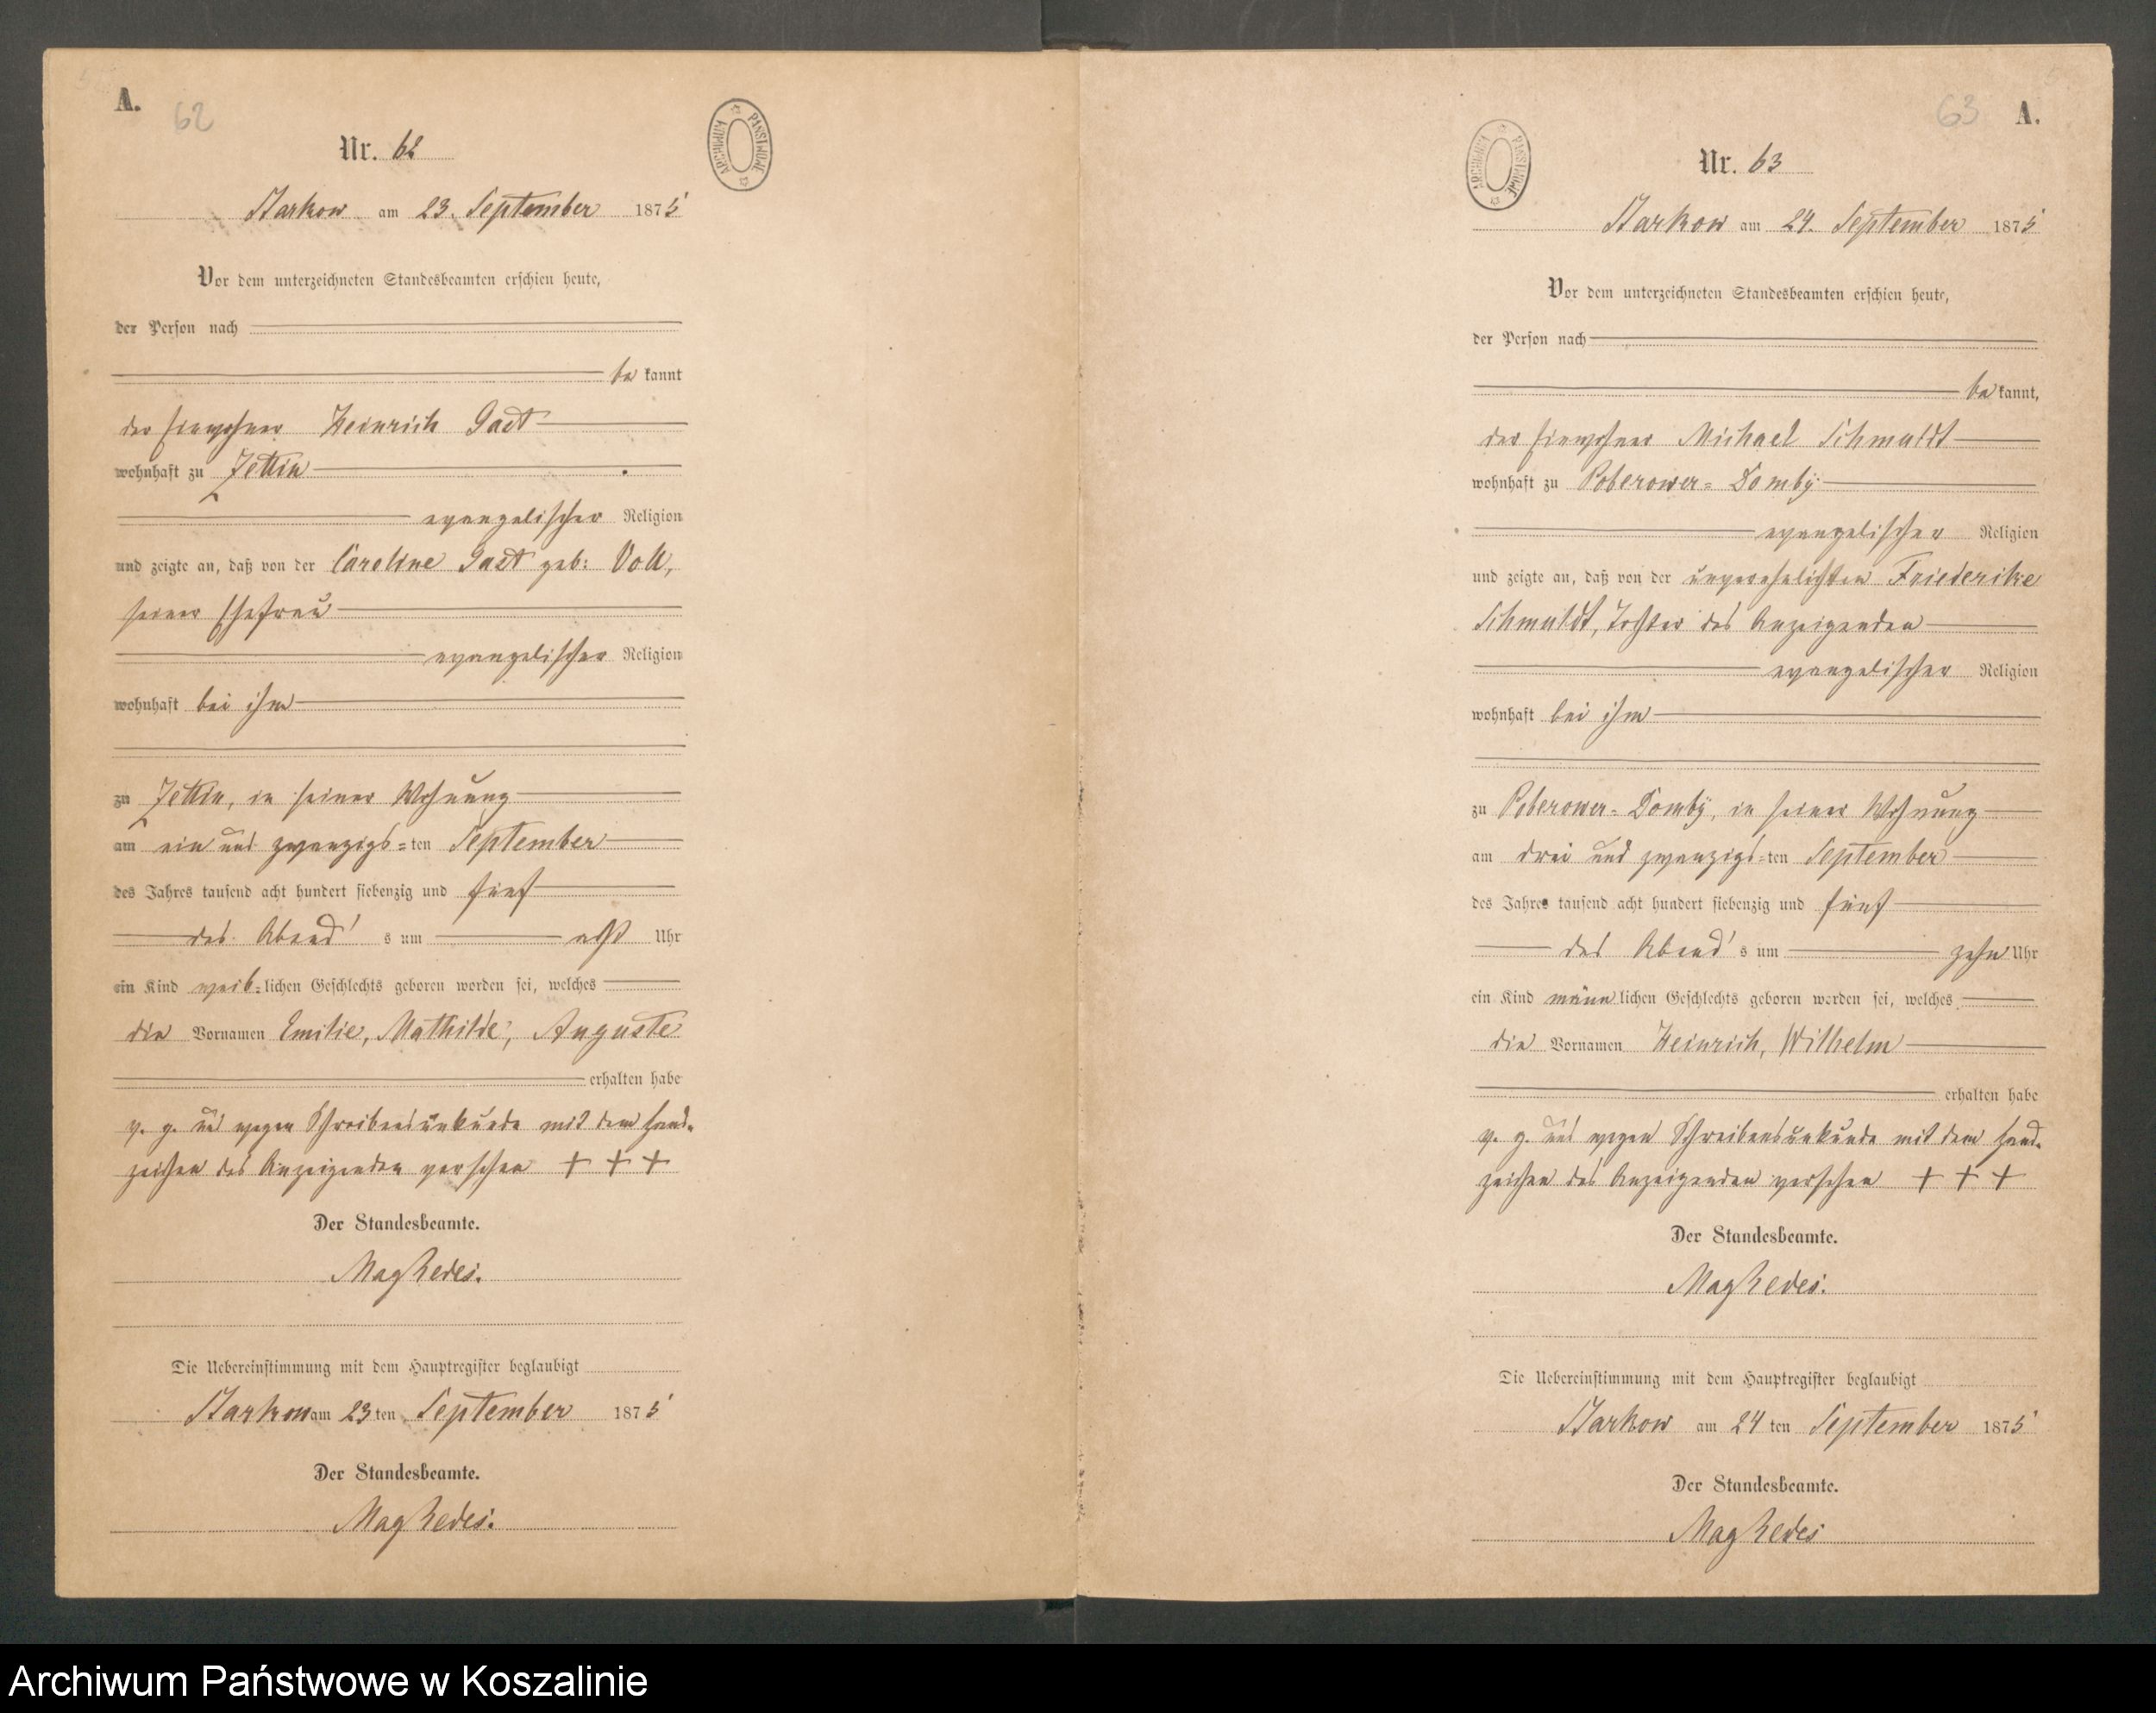 A.
62
Nr. 62
ARCHIWUM PAŃSTWOWE
Starkow am 23. September 1875
Vor dem unterzeichneten Standesbeamten erschien heute,
der Person nach
be kannt
der Einwohner Heinrich Gast
wohnhaft zu Zettin
evangelischer Religion
und zeigte an, daß von der Caroline Gast geb: Voll,
seiner Ehefrau
evangelischer Religion
wohnhaft bei ihm
zu Zettin, in seiner Wohnung
am ein und zwanzigs=ten September
des Jahres tausend acht hundert siebenzig und fünf
des Abend's um acht Uhr
ein Kind weib=lichen Geschlechts geboren worden sei, welches
die Vornamen Emilie, Mathilde, Auguste
erhalten habe
v. g. und wegen Schreibensunkunde mit dem Hand-
zeichen des Anzeigenden versehen + + +
Der Standesbeamte.
Die Uebereinstimmung mit dem Hauptregister beglaubigt
Starkow am 23ten September 1875
Der Standesbeamte.
63
A.
Nr. 63
ARCHIWUM PAŃSTWOWE
Starkow am 24. September 1875
Vor dem unterzeichneten Standesbeamten erschien heute,
der Person nach
be kannt,
der Einwohner Michael Schmuldt
wohnhaft zu Poberower= Domby
evangelischer Religion
und zeigte an, daß von der unverehelichten Friederike
Schmuldt, Tochter des Anzeigenden
evangelischer Religion
wohnhaft bei ihm
zu Poberower= Domby, in seiner Wohnung
am drei und zwanzigs=ten September
des Jahres tausend acht hundert siebenzig und fünf
des Abend's um zehn Uhr
ein Kind männlichen Geschlechts geboren worden sei, welches
die Vornamen Heinrich, Wilhelm
erhalten habe
v. g. und wegen Schreibensunkunde mit dem Hand-
zeichen des Anzeigenden versehen + + +
Der Standesbeamte.
Die Uebereinstimmung mit dem Hauptregister beglaubigt
Starkow am 24 ten September 1875
Der Standesbeamte.
Archiwum Państwowe w Koszalinie